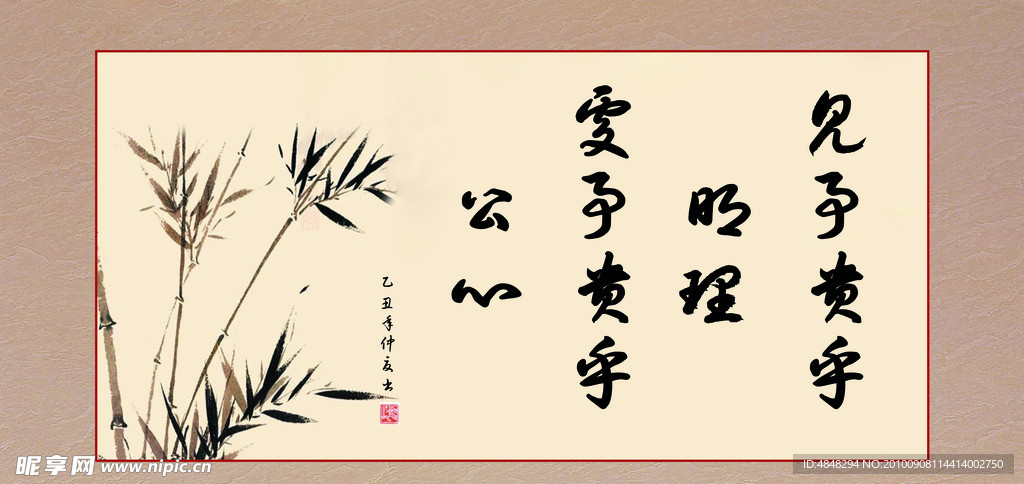 見事貴乎
明理
處事貴乎
公心
乙丑年仲夏书
昵享网 www.nipic.cn
ID:4848294 NO:20100908114414002750